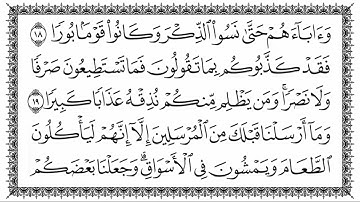 وَءَابَآءَهُمْ حَتَّىٰ نَسُوا۟ ٱلذِّكْرَ وَكَانُوا۟ قَوْمًۢا بُورًا ١٨
فَقَدْ كَذَّبُوكُم بِمَا تَقُولُونَ فَمَا تَسْتَطِيعُونَ صَرْفًا
وَلَا نَصْرًا ۚ وَمَن يَظْلِم مِّنكُمْ نُذِقْهُ عَذَابًا كَبِيرًا ١٩
وَمَآ أَرْسَلْنَا قَبْلَكَ مِنَ ٱلْمُرْسَلِينَ إِلَّآ إِنَّهُمْ لَيَأْكُلُونَ
ٱلطَّعَامَ وَيَمْشُونَ فِى ٱلْأَسْوَاقِ ۗ وَجَعَلْنَا بَعْضَكُمْ